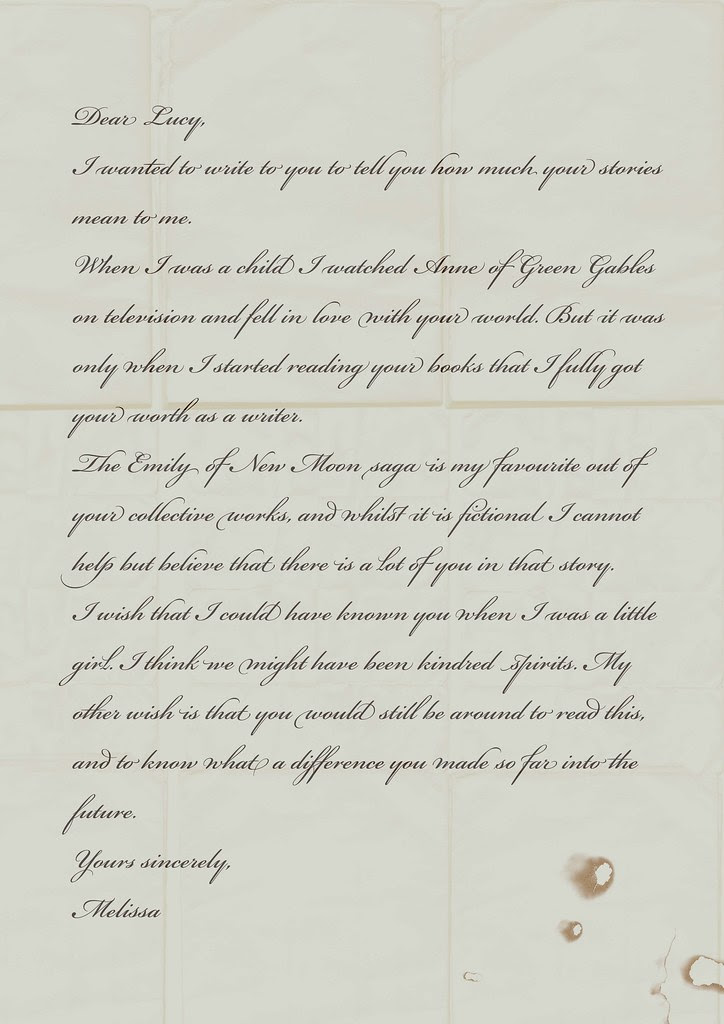 Dear Lucy,
I wanted to write to you to tell you how much your stories
mean to me.
When I was a child I watched Anne of Green Gables
on television and fell in love with your world. But it was
only when I started reading your books that I fully got
your worth as a writer.
The Emily of New Moon saga is my favourite out of
your collective works, and whilst it is fictional I cannot
help but believe that there is a lot of you in that story.
I wish that I could have known you when I was a little
girl. I think we might have been kindred spirits. My
other wish is that you would still be around to read this,
and to know what a difference you made so far into the
future.
Yours sincerely,
Melissa